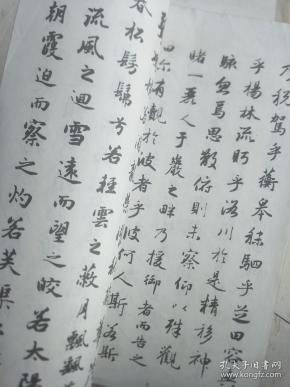 乃税駕乎蘅皋秣駟乎芝田容與
乎楊林流眄乎洛川於是精移神
駭忽焉思散俯則未察仰以殊觀
睹一麗人于巖之畔乃援御者而告之
曰你有覿於彼者乎彼何人斯若斯
春松髣髴兮若輕雲之蔽月飄飄
流風之迴雪遠而望之皎若太陽
朝霞迫而察之灼若芙渠